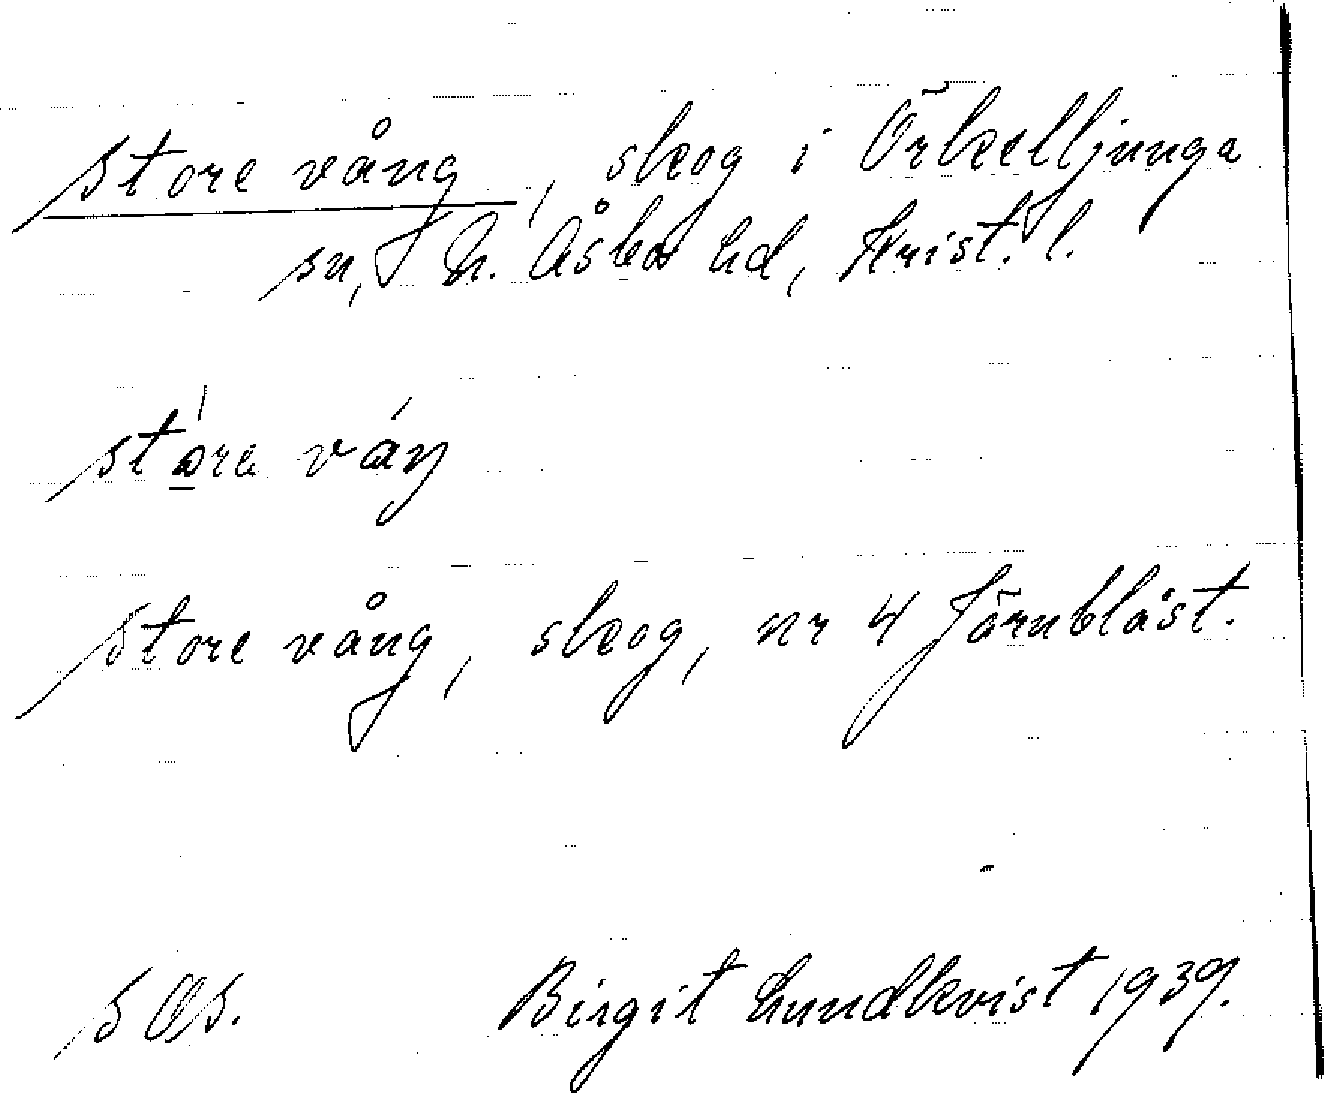 Store vång, skog i Örkelljunga
sn, N. Åsbo hd, Krist. l.
stóre váŋ
Store vång, skog, nr 4 Järnbläst.
SOS. Birgit Lundkvist 1939.